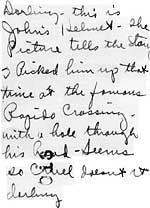 Darling, this is
John's Helmet - the
Picture tells the story
I Picked him up that
time at the famous
Rapido Crossing.
with a hole through
his head - Seems
so cruel doesn't it
darling